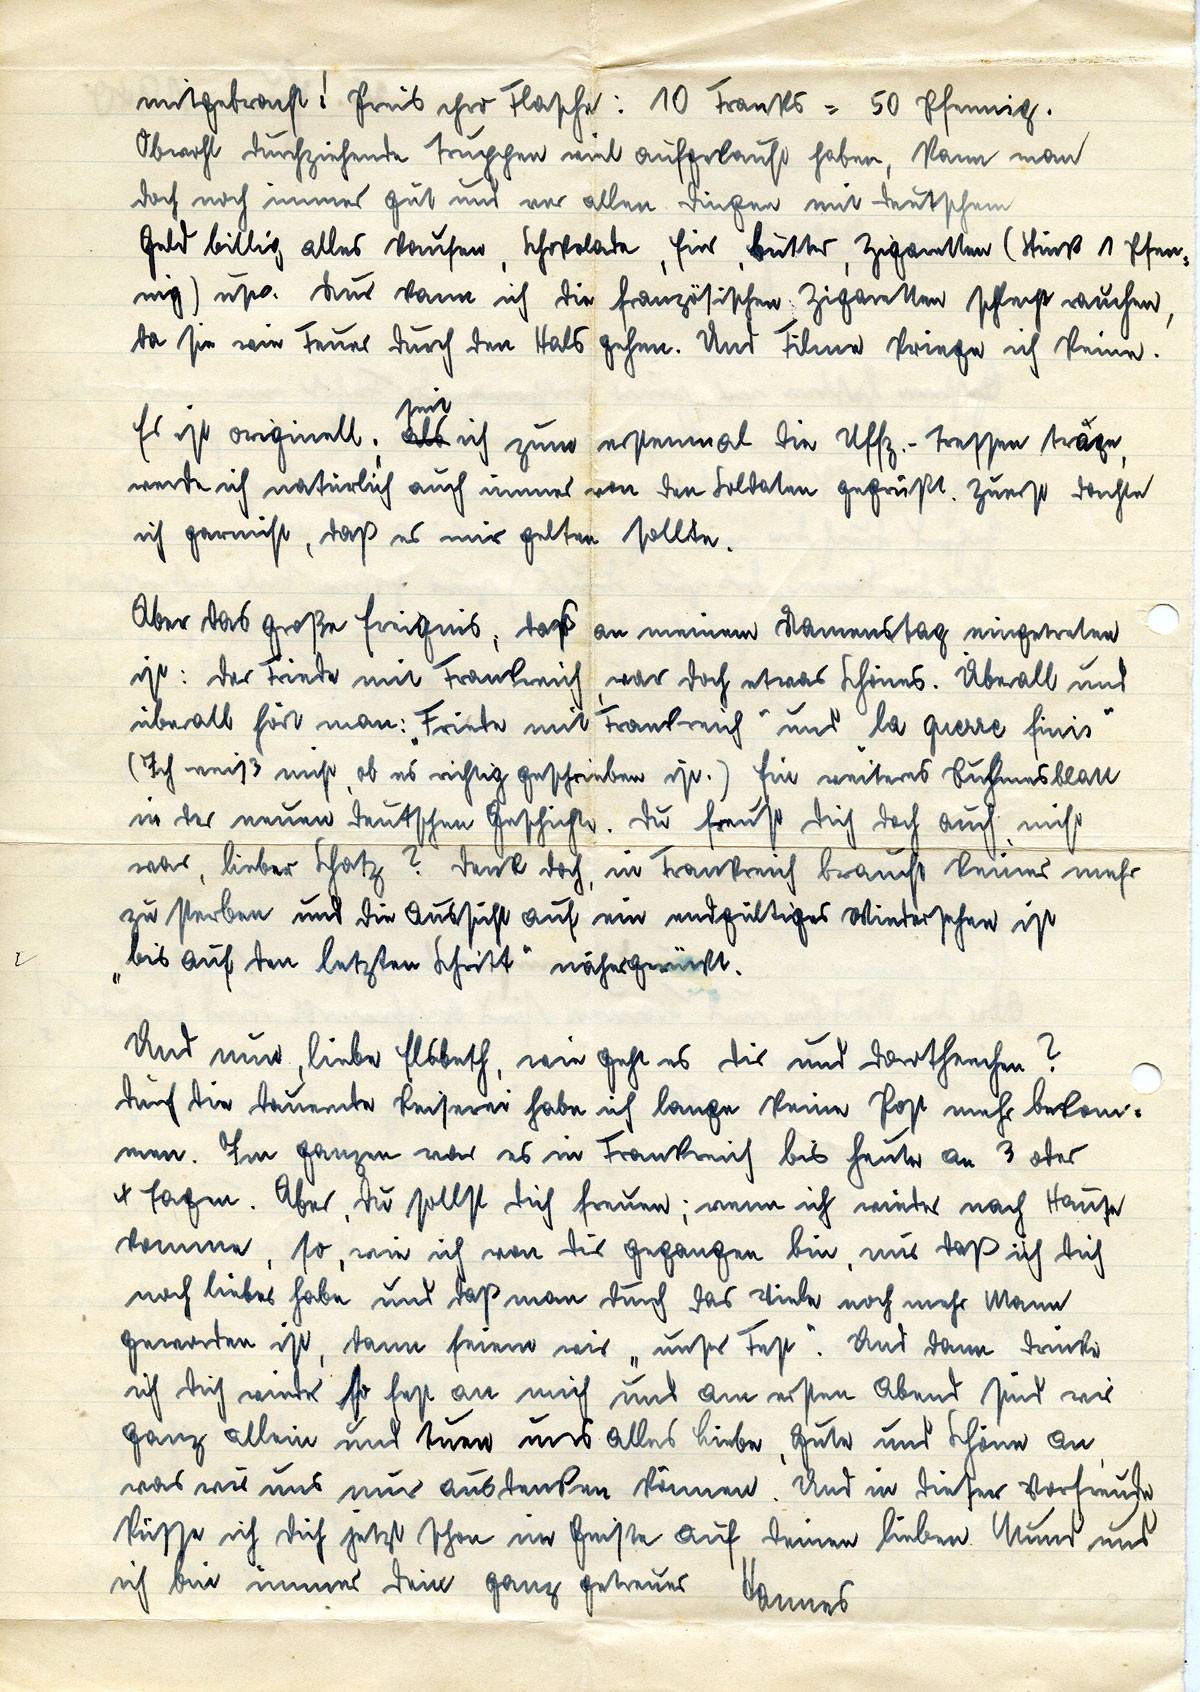 mitgebracht! Preis ihro Flasche: 10 Franks = 50 Pfennig.
Obwohl durchziehende Truppen viel aufgekauft haben, kann man
doch noch immer gut und vor allen Dingen mit deutschem
Geld billig alles kaufen, Schokolade, Eier, Butter, Zigaretten (Stück 1 Pfen-
nig) usw. Nur kann ich die französischen Zigaretten schlecht rauchen,
da sie wie Feuer durch den Hals gehen. Und Filme kriege ich keine.
Es ist originell, seit ich zum erstenmal die Uffz.-Tressen trage,
werde ich natürlich auch immer von den Soldaten gegrüßt. Zuerst dachte
ich garnicht, daß es mir gelten sollte.
Aber das große Ereignis, daß an meinem Namenstag eingetreten
ist: der Friede mit Frankreich, war doch etwas Schönes. Überall und
überall hört man: „Friede mit Frankreich" und „la guerre finis"
(Ich weiß nicht, ob es richtig geschrieben ist.) Ein weiteres Ruhmesblatt
in der neuen deutschen Geschichte. Du freust dich doch auch, nicht
war, lieber Schatz? Denk doch, in Frankreich braucht keiner mehr
zu sterben und die Aussicht auf ein endgültiges Wiedersehen ist
„bis auf den letzten Schritt" nähergerückt.
Und nun, liebe Elsbeth, wie geht es dir und Dorthenchen?
Durch die dauernde Reiserei habe ich lange keine Post mehr bekom-
men. Im ganzen war es in Frankreich bis heute an 3 oder
4 Tagen. Aber, du sollst dich freuen; wenn ich wieder nach Hause
komme, so, wie ich von dir gegangen bin, nur daß ich dich
noch lieber habe und daß man durch das Viele noch mehr Mann
geworden ist, dann feiern wir „unser Fest". Und dann drücke
ich dich wieder so fest an mich und am ersten Abend sind wir
ganz allein und tuen uns alles Liebe, Gute und Schöne an,
was wir uns nur ausdenken können. Und in dieser Vorfreude
küsse ich dich jetzt schon im Geiste auf deinen lieben Mund und
ich bin immer dein ganz getreuer Hannes